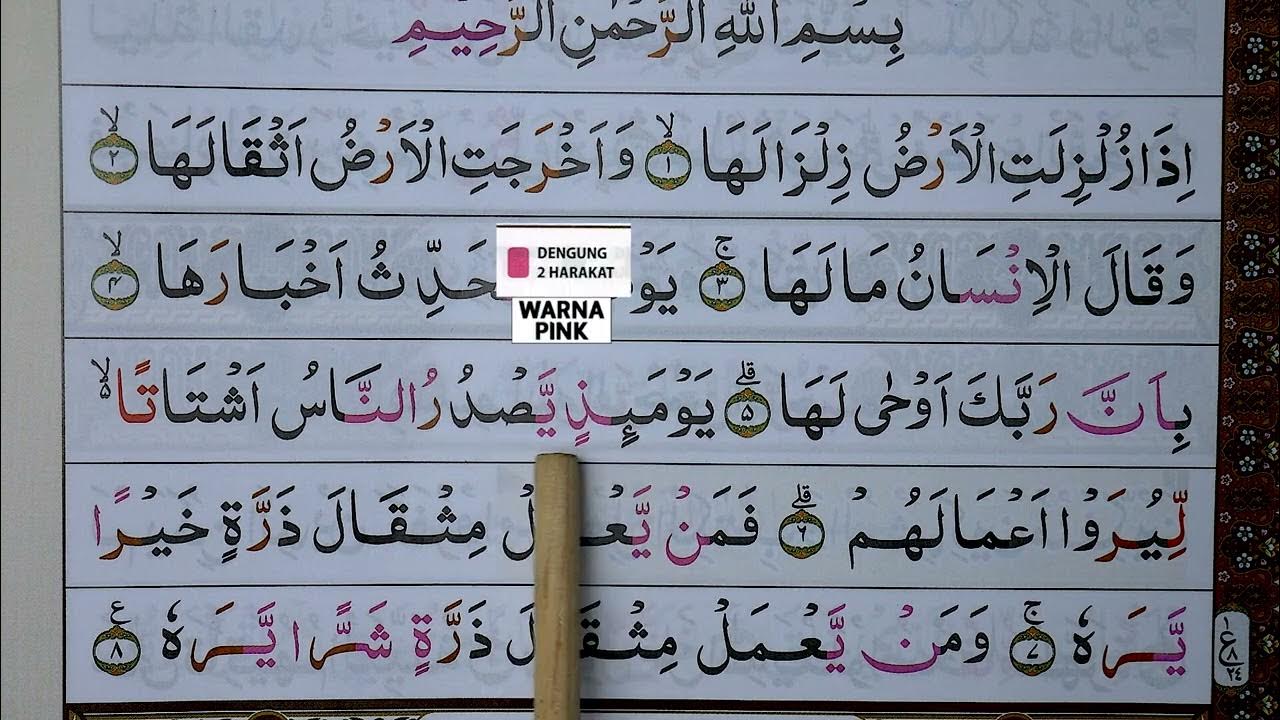 بِسْمِ اللهِ الرَّحْمٰنِ الرَّحِيْمِ
اِذَا زُلْزِلَتِ الْاَرْضُ زِلْزَالَهَا ۙ ١ وَاَخْرَجَتِ الْاَرْضُ اَثْقَالَهَا ۙ ٢
وَقَالَ الْاِنْسَانُ مَا لَهَا ۚ ٣ يَوْ حَدِّثُ اَخْبَارَهَا ۙ ٤
DENGUNG
2 HARAKAT
WARNA
PINK
بِاَنَّ رَبَّكَ اَوْحٰى لَهَا ۗ ٥ يَوْمَىِٕذٍ يَّصْدُرُ النَّاسُ اَشْتَاتًا ۙ ٥
لِّيُرَوْا اَعْمَالَهُمْ ۗ ٦ فَمَنْ يَّعْ لْ مِثْقَالَ ذَرَّةٍ خَيْرًا
يَّرَهٗ ۚ ٧ وَمَنْ يَّعْمَلْ مِثْقَ لَ ذَرَّةٍ شَرًّا يَّرَهٗ ࣖ ٨
ع
١
٨
٢٤